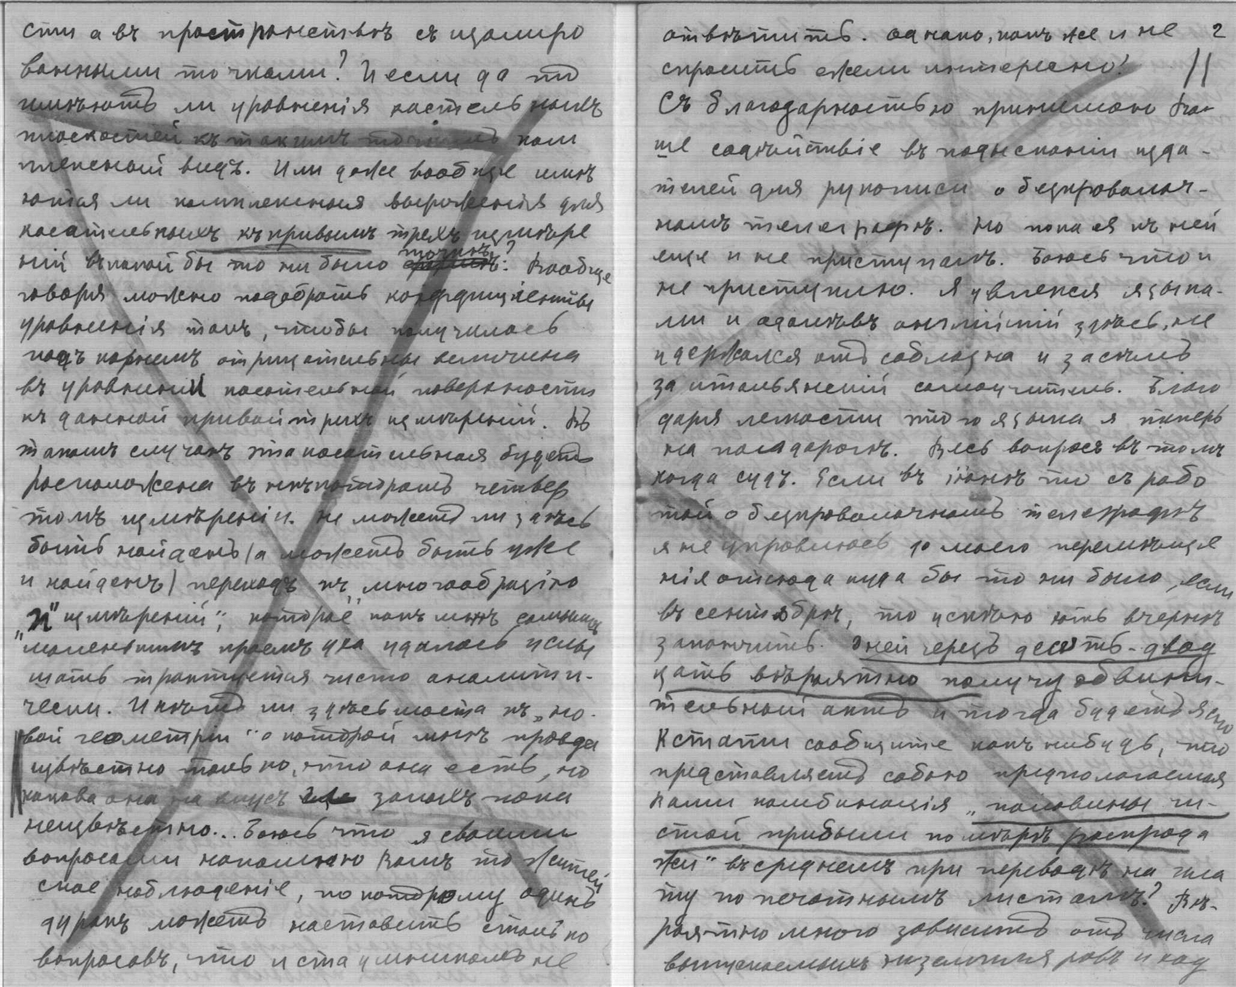 сти а въ пространствѣ съ изолиро
ванными точками? И если да то
имѣютъ ли уравненія касательныхъ
плоскостей къ такимъ точкамъ ком
плексный видъ. Или даже вообще имѣ
ются ли комплексныя выраженія для
касательныхъ къ кривымъ трехъ измѣре
ній въ какой бы то ни было точкѣ? Вообще
говоря можно подобрать коэффиціенты
уравненія такъ, чтобы получилась
подъ корнемъ отрицательная величина
въ уравненіи касательной поверхности
къ данной кривой трехъ измѣреній. Въ
такомъ случаѣ эта касательная будетъ
расположена въ нѣкоторомъ четвер
томъ измѣреніи. Не можетъ ли здѣсь
быть найденъ (а можетъ быть уже
и найденъ) переходъ къ многообразію
"n" измѣреній", которое какъ мнѣ
маленькимъ краемъ уха удалось услы
шать трактуется чисто аналити-
чески. И нѣтъ ли здѣсь моста къ "но-
вой геометріи" о которой мнѣ правда
извѣстно только, что она есть, но
какова она на вкусъ запахъ пока
неизвѣстно... Боюсь что я своими
вопросами напомню Вамъ то житей
ское наблюденіе, по которому одинъ
дуракъ можетъ наставить столько
вопросовъ, что и ста умникамъ не
2
отвѣтить. Однако, какъ же и не
спросить ежели интересно!
11
Съ благодарностью принимаю Ва-
ше содѣйствіе въ подысканіи изда-
телей для рукописи о безпроволоч-
номъ телеграфѣ. Но пока я къ ней
еще и не приступалъ. Боюсь что и
не приступлю. Я увлекся языка-
ми и одолѣвъ англійскій здѣсь, не
удержался отъ соблазна и засѣлъ
за итальянскій самоучитель. Благо
даря легкости этого языка я теперь
на полдорогѣ. Весь вопросъ въ томъ
когда судъ. Если въ іюнѣ то съ рабо
той о безпроволочномъ телеграфѣ
я не управлюсь до моего перемѣще
нія отсюда куда бы то ни было, если
въ сентябрѣ, то успѣю хоть вчернѣ
закончить. Дней черезъ десять-двад
цать вѣроятно получу обвини-
тельный актъ и тогда будетъ ясно
Кстати сообщите какъ нибудь, что
представляетъ собою предполагаемая
Вами комбинація "половины чи-
стой прибыли по мѣрѣ распрода
жи" въ среднемъ при переводѣ на пла
ту по печатнымъ листамъ? Вѣ-
роятно много зависитъ отъ числа
выпускаемыхъ экземпляровъ и